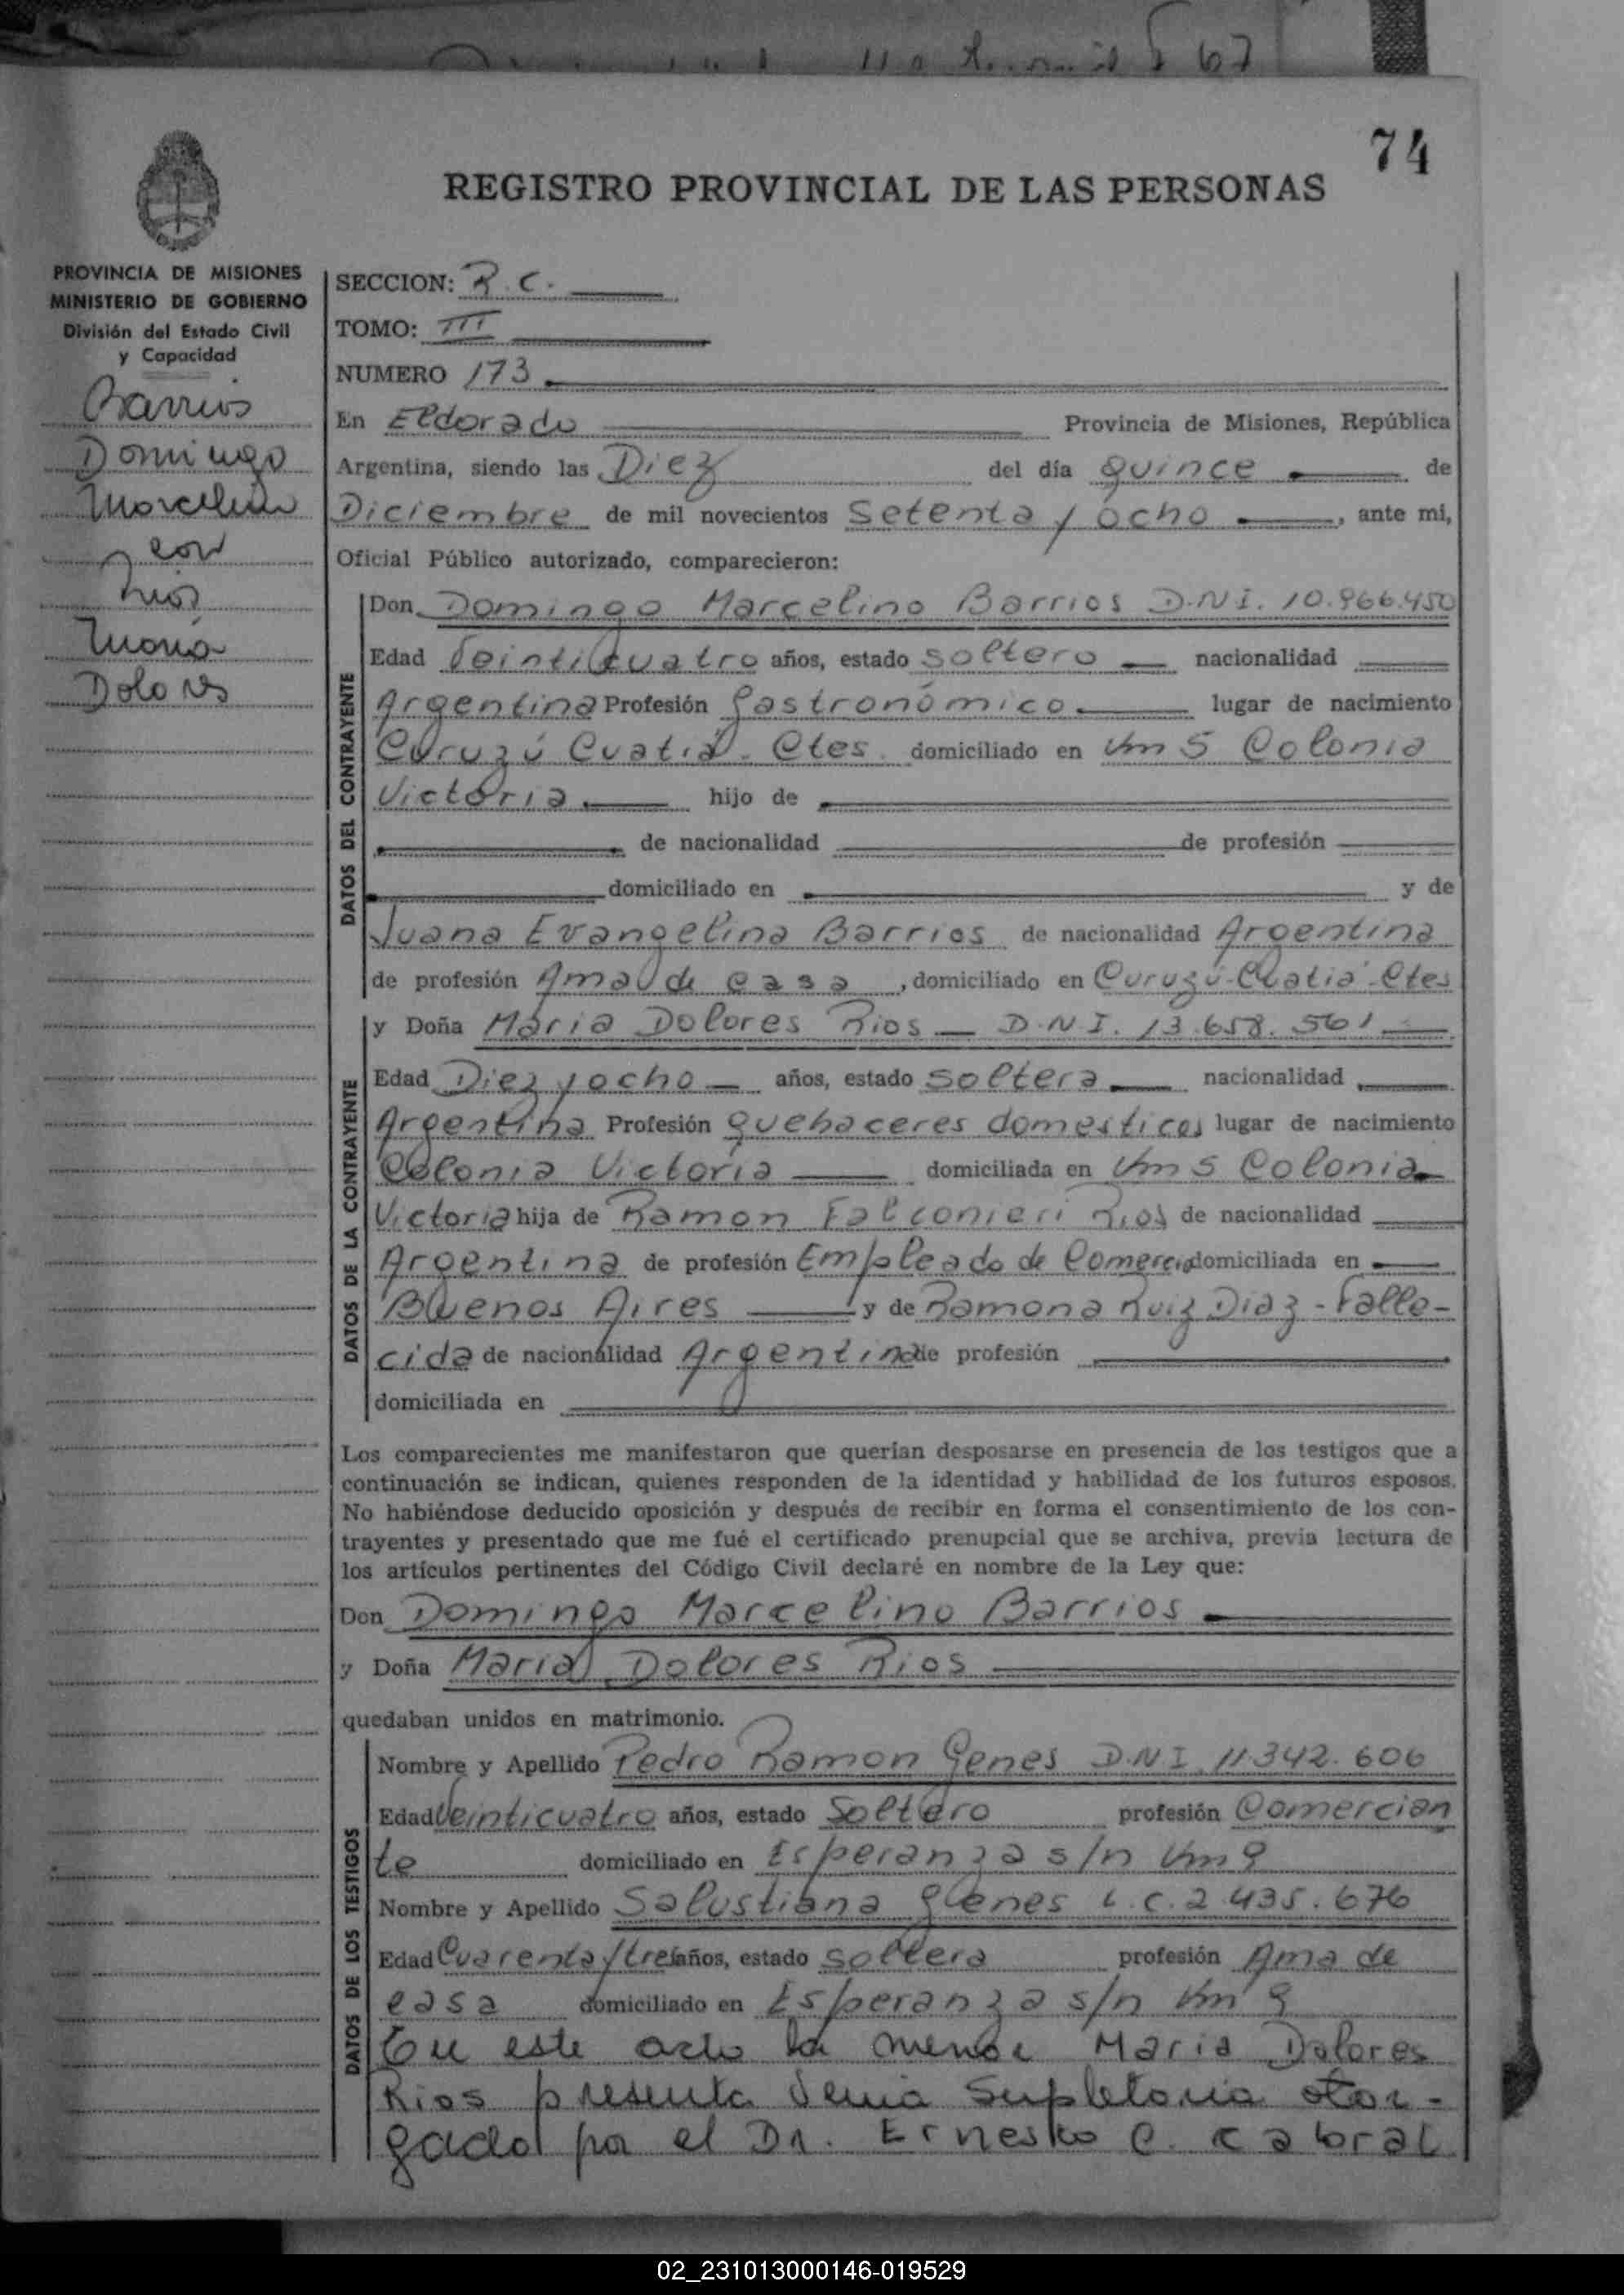 74
REGISTRO PROVINCIAL DE LAS PERSONAS
PROVINCIA DE MISIONES
MINISTERIO DE GOBIERNO
División del Estado Civil
y Capacidad
Barrios
Domingo
Marcelino
con
Rios
Maria
Dolores
SECCION: R.C.
TOMO: III
NUMERO 173
En Eldorado Provincia de Misiones, República
Argentina, siendo las Diez del día quince de
Diciembre de mil novecientos setenta y ocho, ante mi,
Oficial Público autorizado, comparecieron:
DATOS DEL CONTRAYENTE
Don Domingo Marcelino Barrios D.N.I. 10.966.450
Edad Veinticuatro años, estado soltero nacionalidad
Argentina Profesión Gastronómico lugar de nacimiento
Curuzú Cuatiá - Ctes. domiciliado en Km 5 Colonia
Victoria hijo de
de nacionalidad de profesión
domiciliado en y de
Juana Evangelina Barrios de nacionalidad Argentina
de profesión Ama de casa, domiciliado en Curuzú-Cuatiá-Ctes
DATOS DE LA CONTRAYENTE
y Doña Maria Dolores Rios D.N.I. 13.658.561
Edad Diez y ocho años, estado soltera nacionalidad
Argentina Profesión quehaceres domesticos lugar de nacimiento
Colonia Victoria domiciliada en Km 5 Colonia
Victoria hija de Ramon Falconieri Rios de nacionalidad
Argentina de profesión Empleado de Comercio domiciliada en
Buenos Aires y de Ramona Ruiz Diaz - Falle-
cida de nacionalidad Argentina de profesión
domiciliada en
Los comparecientes me manifestaron que querían desposarse en presencia de los testigos que a
continuación se indican, quienes responden de la identidad y habilidad de los futuros esposos.
No habiéndose deducido oposición y después de recibir en forma el consentimiento de los con-
trayentes y presentado que me fué el certificado prenupcial que se archiva, previa lectura de
los artículos pertinentes del Código Civil declaré en nombre de la Ley que:
Don Domingo Marcelino Barrios
y Doña Maria Dolores Rios
quedaban unidos en matrimonio.
DATOS DE LOS TESTIGOS
Nombre y Apellido Pedro Ramon Genes D.N.I. 11.342.606
Edad Veinticuatro años, estado Soltero profesión Comercian
te domiciliado en Esperanza s/n Km 9
Nombre y Apellido Salustiana Genes L.C. 2.435.676
Edad Cuarenta y tres años, estado soltera profesión Ama de
casa domiciliado en Esperanza s/n Km 9
En este acto la menor Maria Dolores
Rios presenta Venia Supletoria otor-
gada por el Dr. Ernesto C. Cabral
02_231013000146-019529